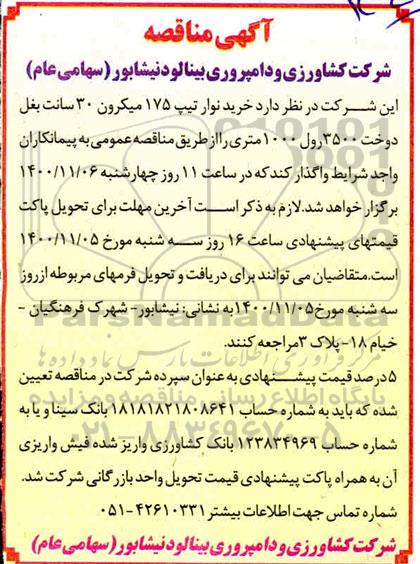 آگهی مناقصه
شرکت کشاورزی و دامپروری بینالود نیشابور (سهامی عام)
این شرکت در نظر دارد خرید نوار تیپ ۱۷۵ میکرون ۳۰ سانت بغل
دوخت ۳۵۰۰ رول ۱۰۰۰ متری را از طریق مناقصه عمومی به پیمانکاران
واجد شرایط واگذار کند که در ساعت ۱۱ روز چهارشنبه ۱۴۰۰/۱۱/۰۶
برگزار خواهد شد. لازم به ذکر است آخرین مهلت برای تحویل پاکت
قیمتهای پیشنهادی ساعت ۱۶ روز سه شنبه مورخ ۱۴۰۰/۱۱/۰۵
است. متقاضیان می توانند برای دریافت و تحویل فرمهای مربوطه از روز
سه شنبه مورخ ۱۴۰۰/۱۱/۰۵ به نشانی: نیشابور - شهرک فرهنگیان -
خیام ۱۸ - پلاک ۳ مراجعه کنند.
۵ درصد قیمت پیشنهادی به عنوان سپرده شرکت در مناقصه تعیین
شده که باید به شماره حساب ۱۸۱۸۱۸۲۱۸۰۸۶۴۱ بانک سینا و یا به
شماره حساب ۱۲۳۸۳۴۹۶۹ بانک کشاورزی واریز شده فیش واریزی
آن به همراه پاکت پیشنهادی قیمت تحویل واحد بازرگانی شرکت شد.
شماره تماس جهت اطلاعات بیشتر ۴۲۶۱۰۳۳۱-۰۵۱
شرکت کشاورزی و دامپروری بینالود نیشابور (سهامی عام)
ParsNamadData
مرکز فرآوری اطلاعات پارس نماد داده ها
پایگاه اطلاع رسانی مناقصه و مزایده
۰۲۱-۸۸۳۴۹۶۷۰-۵